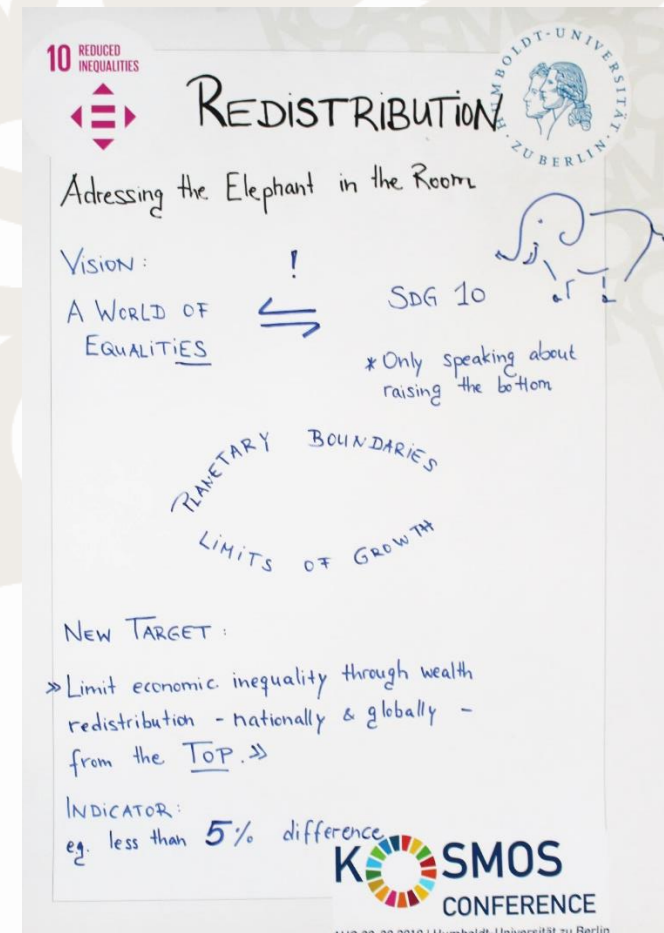 10 REDUCED
INEQUALITIES
HUMBOLDT-UNIVERSITÄT · ZU BERLIN ·
REDISTRIBUTION
Adressing the Elephant in the Room
VISION:
!
A WORLD OF
EQUALITIES
SDG 10
* Only speaking about
raising the bottom
PLANETARY BOUNDARIES
LIMITS OF GROWTH
NEW TARGET:
» Limit economic inequality through wealth
redistribution - nationally & globally -
from the TOP. »
INDICATOR:
eg. less than 5% difference
KOSMOS
CONFERENCE
2019 | Humboldt-Universität zu Berlin